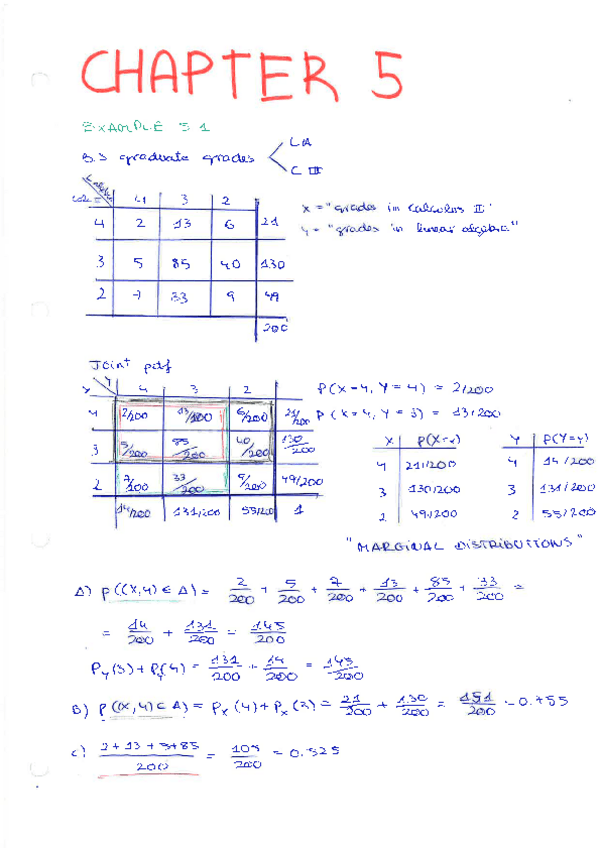 CHAPTER 5
EXAMPLE 5.1
B.S graduate grades
LA
C III
4 3 2
4 2 13 6 21
3 5 85 40 130
2 7 33 9 49
200
X = "grades in Calculus II"
Y = "grades in linear algebra"
Joint pdf
Y 4 3 2
4 2/200 13/200 6/200 21/200
3 5/200 85/200 40/200 130/200
2 7/200 33/200 9/200 49/200
14/200 131/200 55/200 1
P(X=4, Y=4) = 2/200
P(X=4, Y=3) = 13/200
X P(X=x) Y P(Y=y)
4 21/200 4 14/200
3 130/200 3 131/200
2 49/200 2 55/200
"MARGINAL DISTRIBUTIONS"
A) P((X,Y) ∈ A) = 2/200 + 5/200 + 7/200 + 13/200 + 85/200 + 33/200 =
= 14/200 + 131/200 = 145/200
P_Y(3) + P_Y(4) = 131/200 + 14/200 = 145/200
B) P((X,Y) ∈ A) = P_X(4) + P_X(3) = 21/200 + 130/200 = 151/200 = 0.755
C) (2 + 13 + 5 + 85)/200 = 105/200 = 0.525